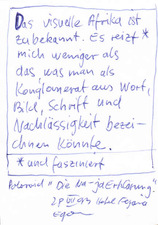 Das visuelle Afrika ist
zu bekannt. Es reizt *
mich weniger als
das, was man als
Konglomerat aus Wort,
Bild, Schrift und
Nachlässigkeit bezei-
chnen könnte.
* und fasziniert
Polaroid "Die na-ja Erklärung"
Hotel